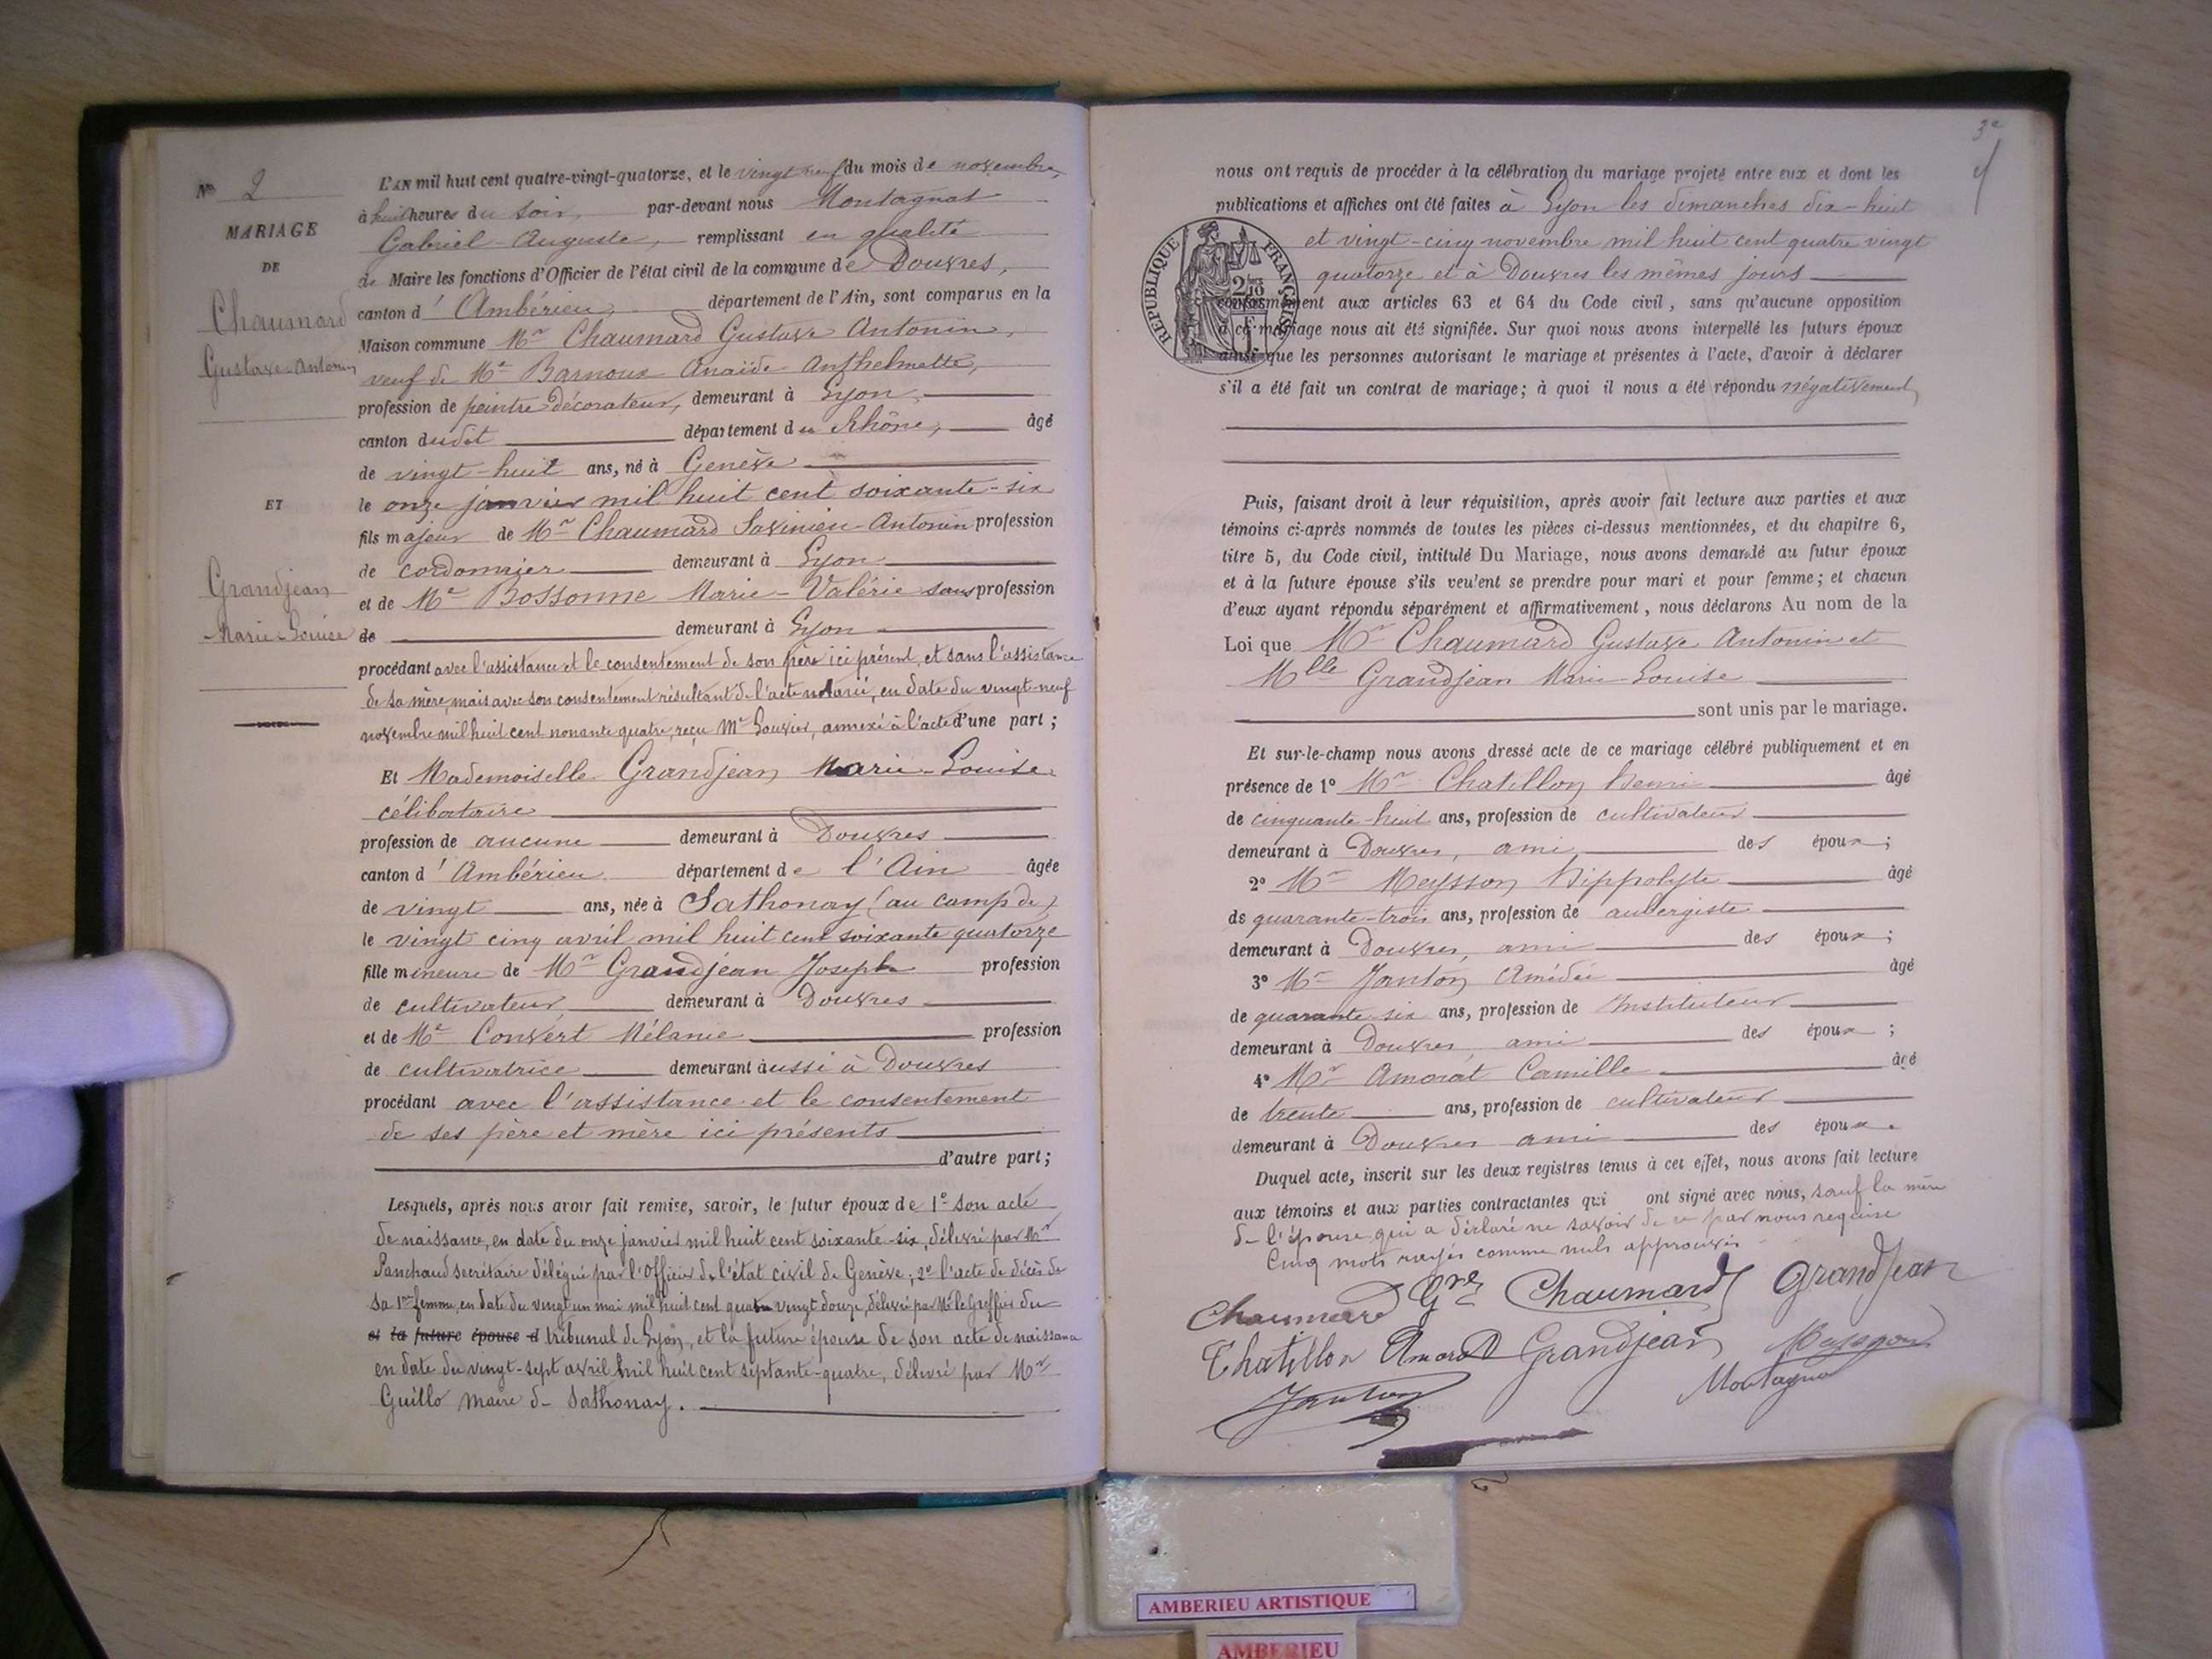 No 2
MARIAGE
DE
Chaumard
Gustave-Antonin
ET
Grandjean
Marie-Louise
L'AN mil huit cent quatre-vingt-quatorze, et le vingt neuf du mois de novembre,
à huit heures du soir, par-devant nous Montagnat
Gabriel-Auguste, remplissant en qualité
de Maire les fonctions d'Officier de l'état civil de la commune de Douvres,
canton d'Ambérieu, département de l'Ain, sont comparus en la
Maison commune Mr Chaumard Gustave Antonin,
veuf de Me Barnoux Anaïde Anthelmette,
profession de peintre-décorateur, demeurant à Lyon,
canton dudit département du Rhône, âgé
de vingt-huit ans, né à Genève
le onze janvier mil huit cent soixante-six
fils majeur de Mr Chaumard Savinien-Antonin profession
de cordonnier demeurant à Lyon
et de Me Bossonne Marie-Valérie sans profession
de demeurant à Lyon
procédant avec l'assistance et le consentement de son père ici présent, et sans l'assistance
de sa mère, mais avec son consentement résultant de l'acte notarié, en date du vingt-neuf
novembre mil huit cent nonante quatre, reçu Me Louvier, annexé à l'acte d'une part;
Et Mademoiselle Grandjean Marie-Louise
célibataire
profession de aucune demeurant à Douvres
canton d'Ambérieu département de l'Ain âgée
de vingt ans, née à Sathonay (au camp de)
le vingt cinq avril mil huit cent soixante quatorze
fille mineure de Mr Grandjean Joseph profession
de cultivateur, demeurant à Douvres
et de Me Convert Mélanie profession
de cultivatrice demeurant aussi à Douvres
procédant avec l'assistance et le consentement
de ses père et mère ici présents
d'autre part;
Lesquels, après nous avoir fait remise, savoir, le futur époux de 1º son acte
de naissance, en date du onze janvier mil huit cent soixante-six, délivré par Mr
Panchaud secrétaire délégué par l'Officier de l'état civil de Genève; 2º l'acte de décès de
sa 1re femme, en date du vingt un mai mil huit cent quatre vingt douze, délivré par Mr le Greffier du
et la future épouse d tribunal de Lyon, et la future épouse de son acte de naissance
en date du vingt-sept avril mil huit cent septante-quatre, délivré par Mr
Guillo maire de Sathonay.
3e
nous ont requis de procéder à la célébration du mariage projeté entre eux et dont les
publications et affiches ont été faites à Lyon les dimanches dix-huit
et vingt-cinq novembre mil huit cent quatre vingt
quatorze et à Douvres les mêmes jours
REPUBLIQUE FRANÇAISE
conformément aux articles 63 et 64 du Code civil, sans qu'aucune opposition
à ce mariage nous ait été signifiée. Sur quoi nous avons interpellé les futurs époux
ainsi que les personnes autorisant le mariage et présentes à l'acte, d'avoir à déclarer
s'il a été fait un contrat de mariage; à quoi il nous a été répondu négativement,
Puis, faisant droit à leur réquisition, après avoir fait lecture aux parties et aux
témoins ci-après nommés de toutes les pièces ci-dessus mentionnées, et du chapitre 6,
titre 5, du Code civil, intitulé Du Mariage, nous avons demandé au futur époux
et à la future épouse s'ils veulent se prendre pour mari et pour femme; et chacun
d'eux ayant répondu séparément et affirmativement, nous déclarons Au nom de la
Loi que Mr Chaumard Gustave Antonin et
Mlle Grandjean Marie-Louise
sont unis par le mariage.
Et sur-le-champ nous avons dressé acte de ce mariage célébré publiquement et en
présence de 1º Mr Chatillon Henri âgé
de cinquante-huit ans, profession de cultivateur
demeurant à Douvres, ami des époux;
2º Mr Meysson Hippolyte âgé
de quarante-trois ans, profession de aubergiste
demeurant à Douvres, ami des époux;
3º Mr Janton Amédée âgé
de quarante-six ans, profession de Instituteur
demeurant à Douvres, ami des époux;
4º Mr Amorat Camille âgé
de trente ans, profession de cultivateur
demeurant à Douvres ami des époux.
Duquel acte, inscrit sur les deux registres tenus à cet effet, nous avons fait lecture
aux témoins et aux parties contractantes qui ont signé avec nous, sauf la mère
de l'épouse qui a déclaré ne savoir de ce par nous requise
Cinq mots rayés comme nuls approuvés
Chaumard Gve Chaumard Grandjean
Chatillon Amorat Grandjean Meysson
Janton Montagnat
AMBERIEU ARTISTIQUE
AMBERIEU